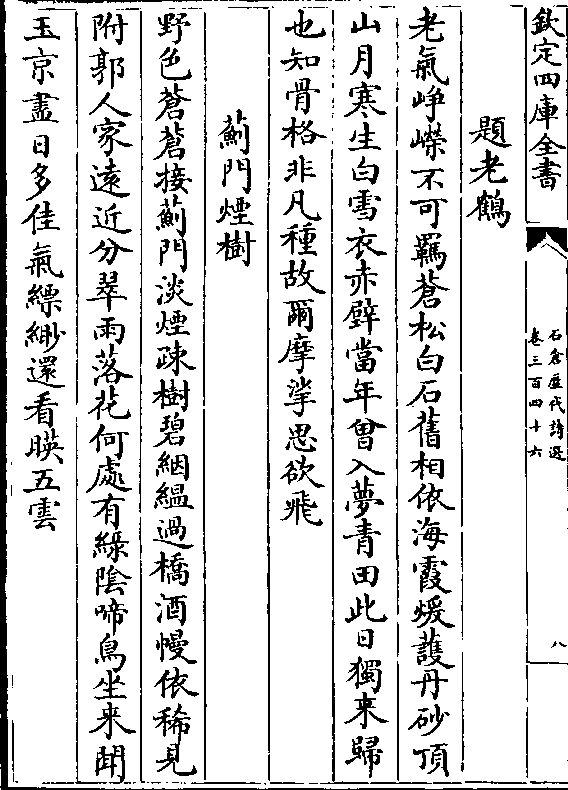 欽定四庫全書
石倉歷代詩選
卷三百四十六
八
題老鶴
老氣崢嶸不可羈蒼松白石舊相依海霞煖護丹砂頂
山月寒生白雪衣赤壁當年曾入夢青田此日獨來歸
也知骨格非凡種故爾摩挲思欲飛
薊門煙樹
野色蒼蒼接薊門淡煙疎樹碧絪縕過橋酒幔依稀見
附郭人家遠近分翠雨落花何處有綠陰啼鳥坐来聞
玉京盡日多佳氣縹緲還看暎五雲